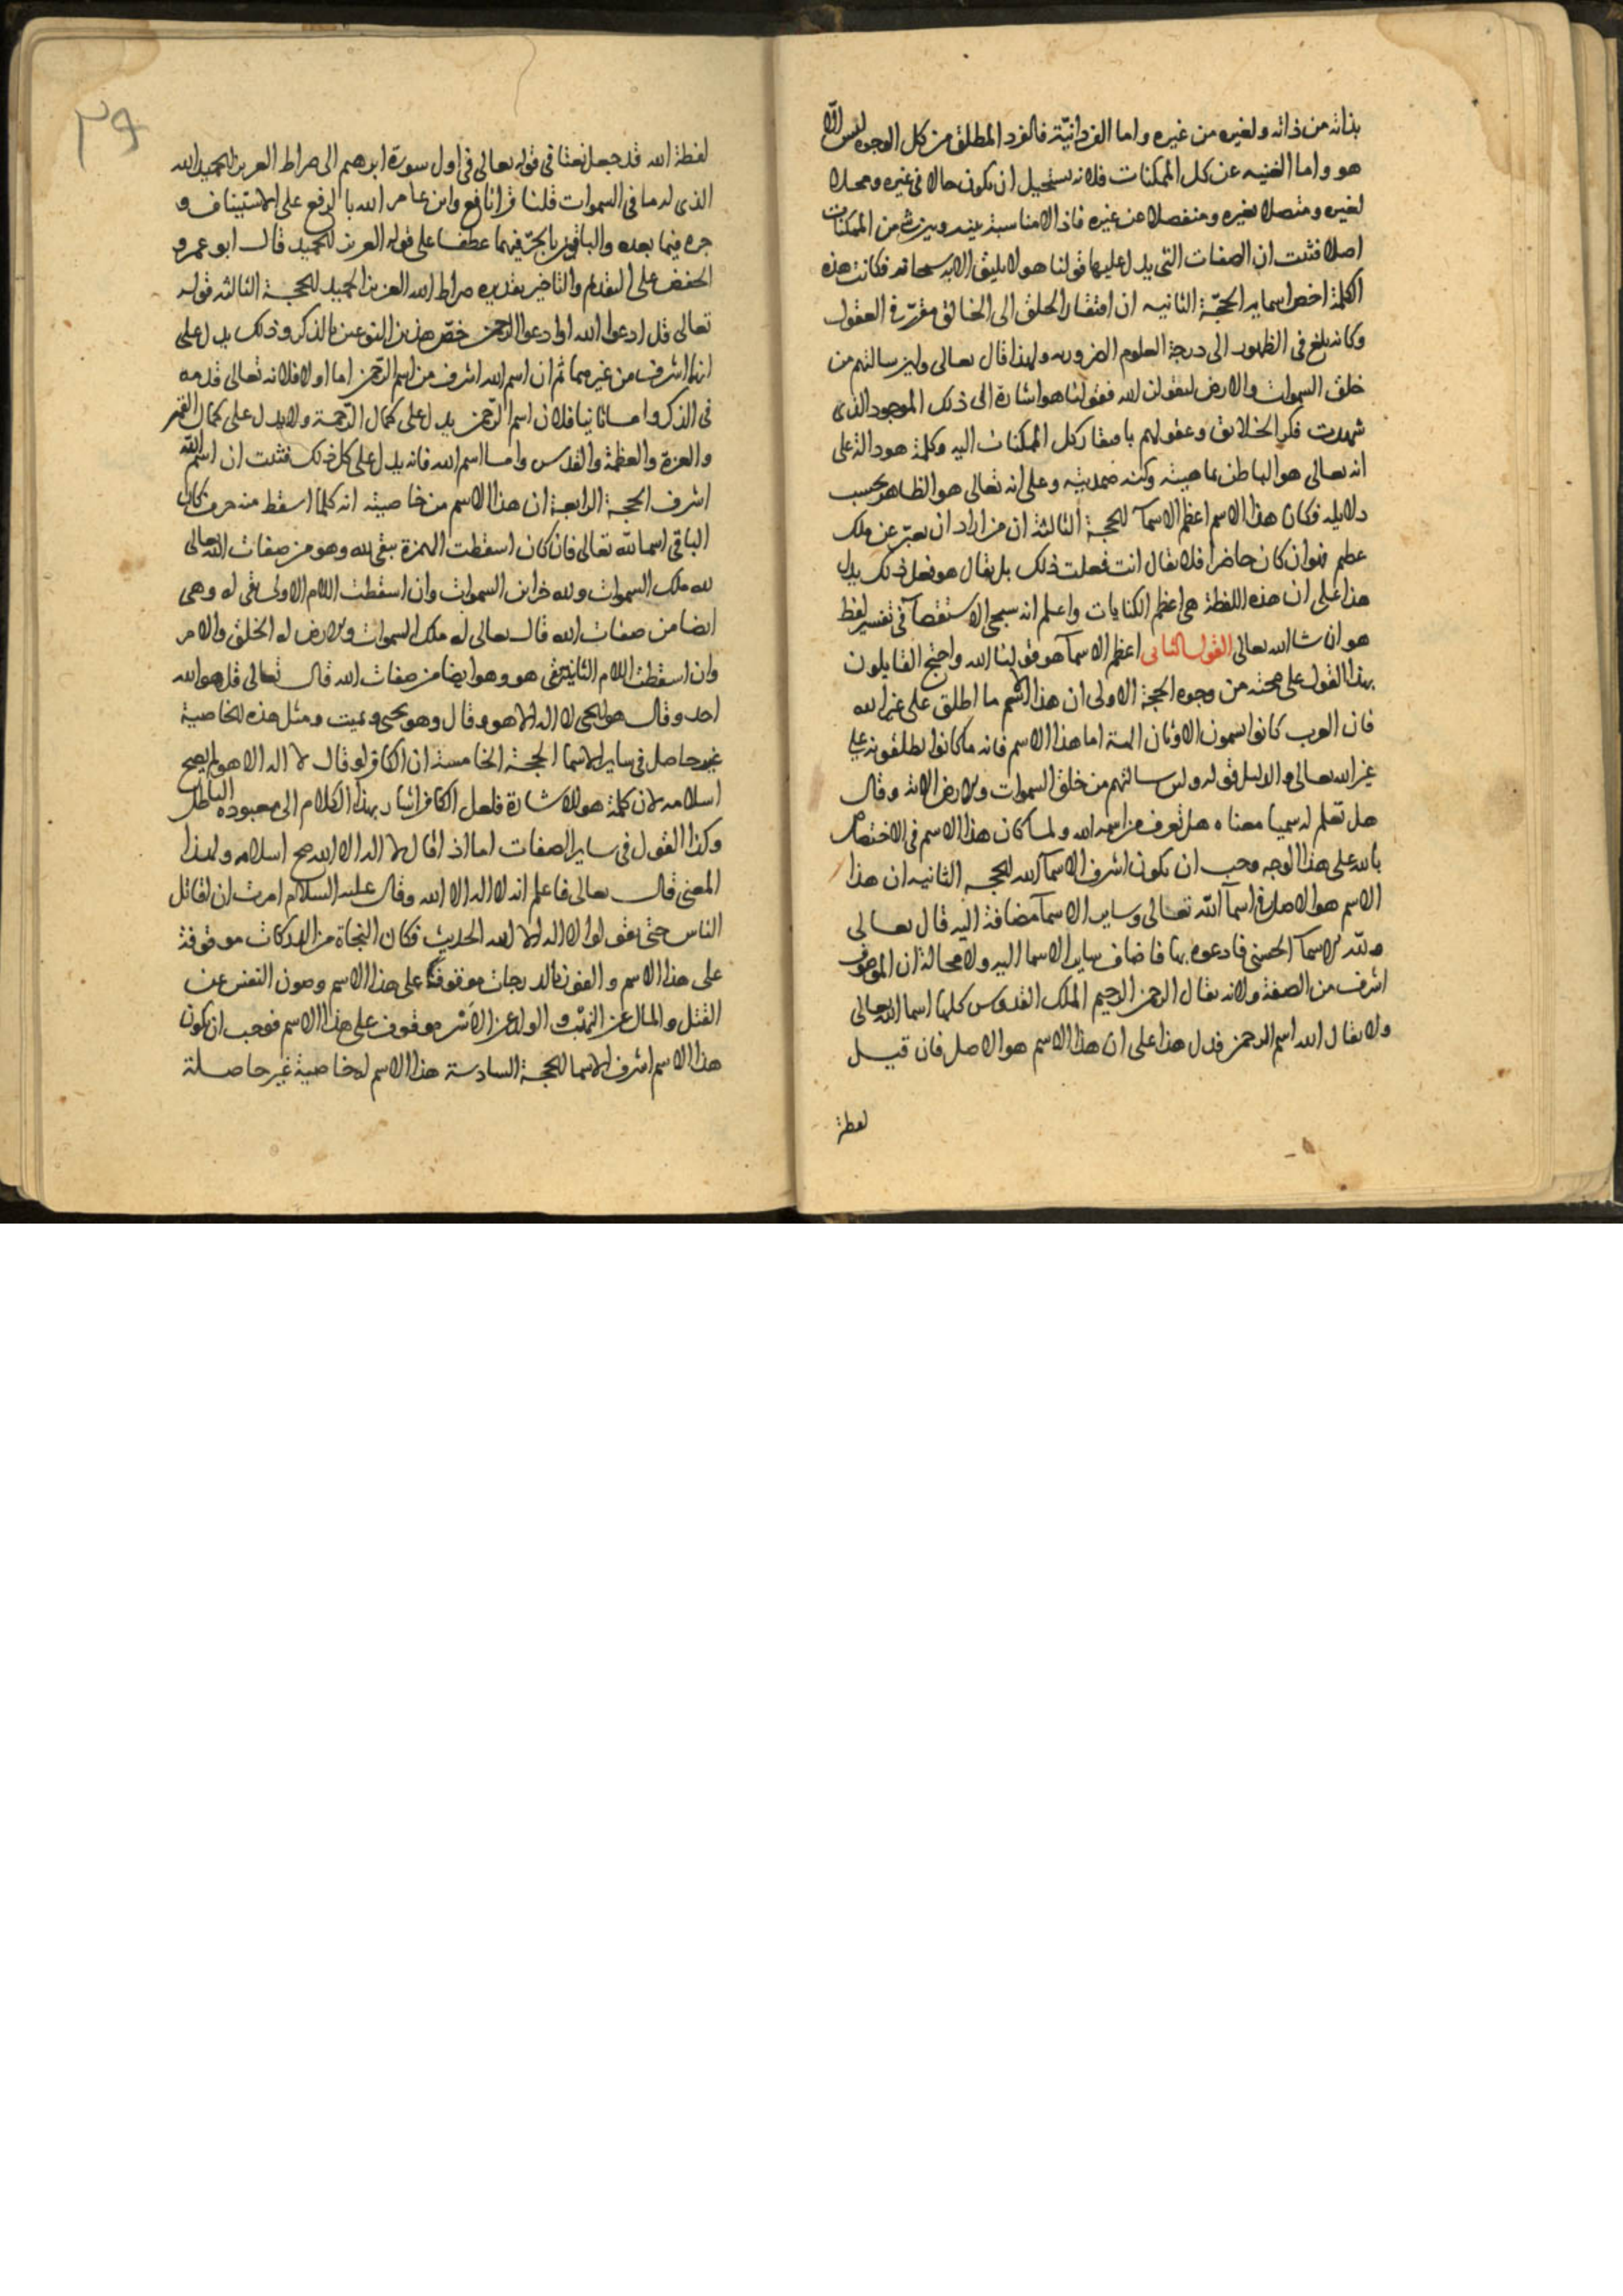 بذاته من ذاته ولغيره من غيره واما الفردانيّة فالفرد المطلق من كل الوجوه ليس الّا
هو واما الغنيه عن كل الممكنات فلانه يستحيل ان يكون حالا فى غيره ومحلا
لغيره ومتصلا بغيره ومنفصلا عن غيره فاذا لا مناسبة بينه وبين شى من الممكنات
اصلا فثبت ان الصفات التى يدل عليها قولنا هو لا يليق الا به سبحانه فكانت هذه
الكلمة اخص اسمايه الحجّة الثانيه ان افتقار الخلق الى الخالق مقرّر فى العقول
وكانه بلغ فى الظهور الى درجة العلوم الضروريه ولهذا قال تعالى ولين سالتهم من
خلق السموات والارض ليقولن الله فقولنا هو اشارة الى ذلك الموجود الذى
شهدت فكر الخلايق وعقولهم بافتقار كل الممكنات اليه وكلمة هو دالة على
انه تعالى هو الباطن بماهيته وكنه صمديته وعلى انه تعالى هو الظاهر بحسب
دلايله فكان هذا الاسم اعظم الاسمآ الحجة الثالثة ان من اراد ان يعبّر عن ملك
عظيم فهو ان كان حاضرا فلا يقال انت فعلت ذلك بل يقال هو فعل ذلك يدل
هذا على ان هذه اللفظة هى اعظم الكنايات واعلم انه سيجى الاستقصآ فى تفسير لفظ
هو ان شا الله تعالى القول الثانى اعظم الاسمآ هو قولنا الله واحتج القايلون
بهذا القول على صحته من وجوه الحجة الاولى ان هذا الاسم ما اطلق على غير الله
فان العرب كانوا يسمون الاوثان الهة اما هذا الاسم فانه ما كانوا يطلقونه على
غير الله تعالى والدليل قوله ولين سالتهم من خلق السموات والارض الاية وقال
هل تعلم له سميا معناه هل تعرف من اسمه الله ولما كان هذا الاسم فى الاختصاص
بالله على هذا الوجه وجب ان يكون اشرف الاسمآ لله الحجة الثانيه ان هذا
الاسم هو الاصل فى اسمآ الله تعالى وساير الاسمآ مضافة اليه قال تعالى
ولله الاسمآ الحسنى فادعوه بها فاضاف ساير الاسما اليه ولا محالة ان الموصوف
اشرف من الصفة ولانه يقال الرحمن الرحيم الملك القدوس كلها اسما الله تعالى
ولا يقال الله اسم الرحمن فدل هذا على ان هذا الاسم هو الاصل فان قيل
لفظة
٣٩
لفظة الله قد جعل نعتا فى قوله تعالى فى اول سورة ابرهيم الى صراط العزيز الحميد الله
الذى له ما فى السموات قلنا قرا نافع وابن عامر الله بالرفع على الاستيناف و
جره فيما بعده والباقون بالجرّ فيهما عطفا على قوله العزيز الحميد قال ابو عمرو
الخفض على التقديم والتاخير تقديره صراط الله العزيز الحميد الحجة الثالثه قوله
تعالى قل ادعوا الله او ادعوا الرحمن خصّ هذين النوعين بالذكر وذلك يدل على
انهما اشرف من غيرهما ثم ان اسم الله اشرف من اسم الرّحمن اما اولا فلانه تعالى قدمه
فى الذكر واما ثانيا فلان اسم الرّحمن يدل على كمال الرّحمة ولا يدل على كمال القهر
والعزة والعظمة والقدس واما اسم الله فانه يدل على كل ذلك فثبت ان اسم الله
اشرف الحجة الرابعة ان هذا الاسم من خاصيته انه كلما اسقط منه حرف كان
الباقى اسما لله تعالى فان كان اسقطت الهمزة بقى لله وهو من صفات الله تعالى
لله ملك السموات ولله خزاين السموات وان اسقطت اللام الاولى بقى له وهى
ايضا من صفات الله قال تعالى له ملك السموات والارض له الخلق والامر
وان اسقطت اللام الثانية بقى هو وهو ايضا من صفات الله قال تعالى قل هو الله
احد وقال هو الحى لا اله الا هو وقال وهو يحيى ويميت ومثل هذه الخاصية
غير حاصل فى ساير الاسما الحجة الخامسة ان الكافر لو قال لا اله الا هو لم يصح
اسلامه لان كلمة هو للاشارة فلعل الكافر اشار بهذا الكلام الى معبوده الباطل
وكذا القول فى ساير الصفات اما اذا قال لا اله الا الله صح اسلامه ولهذا
المعنى قال تعالى فاعلم انه لا اله الا الله وقال عليه السلام امرت ان اقاتل
الناس حتى يقولوا لا اله الا الله الحديث فكان النجاة من الدركات موقوفة
على هذا الاسم والفوز بالدرجات موقوفة على هذا الاسم وصون النفس عن
القتل والمال عن النهب والولد عن الاسر موقوف على هذا الاسم فوجب ان يكون
هذا الاسم اشرف الاسما الحجة السادسة هذا الاسم له خاصية غير حاصلة